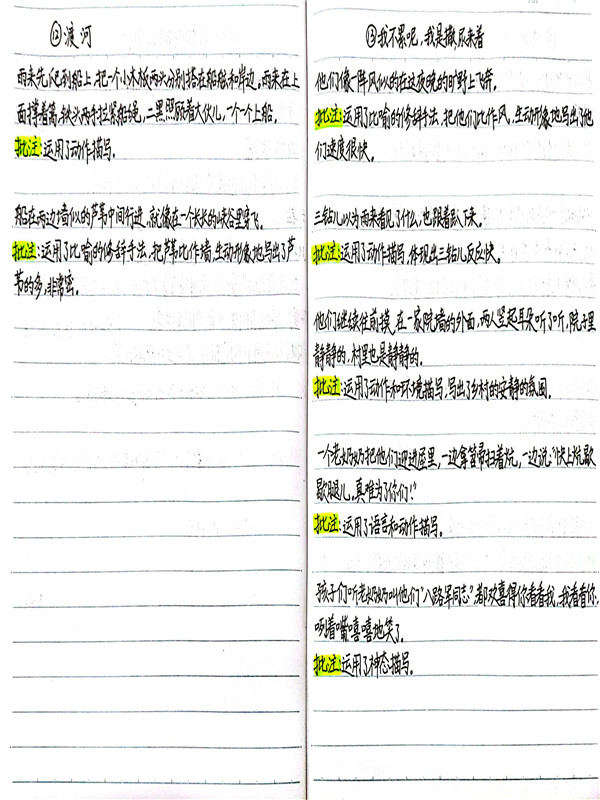 ⑫渡河
雨来先爬到船上,把一个小木板两头分别搭在船舷和岸边。雨来在上
面撑着篙,铁头两手拉紧船绳,二黑照顾着大伙儿,一个一个上船。
批注:运用了动作描写。
船在两边墙似的芦苇中间行进,就像在一个长长的峡谷里穿飞。
批注:运用了比喻的修辞手法,把芦苇比作墙,生动形象地写出了芦
苇的多,非常密。
⑬我不累呢,我是撒尿来着
他们像一阵风似的在这夜晚的旷野上飞奔。
批注:运用了比喻的修辞手法,把他们比作风,生动形象地写出了他
们速度很快。
三钻儿以为雨来看见了什么,也跟着趴下来。
批注:运用了动作描写,体现出三钻儿反应快。
他们继续往前摸,在一家院墙的外面,两人竖起耳朵听了听,院子里
静静的,村里也是静静的。
批注:运用了动作和环境描写,写出了乡村的安静的氛围。
一个老奶奶把他们迎进屋里,一边拿笤帚扫着炕,一边说:“快上炕歇
歇腿儿,真难为了你们!”
批注:运用了语言和动作描写。
孩子们听老奶奶叫他们“八路军同志”,都欢喜得你看看我,我看看你,
咧着嘴嘻嘻地笑了。
批注:运用了神态描写。